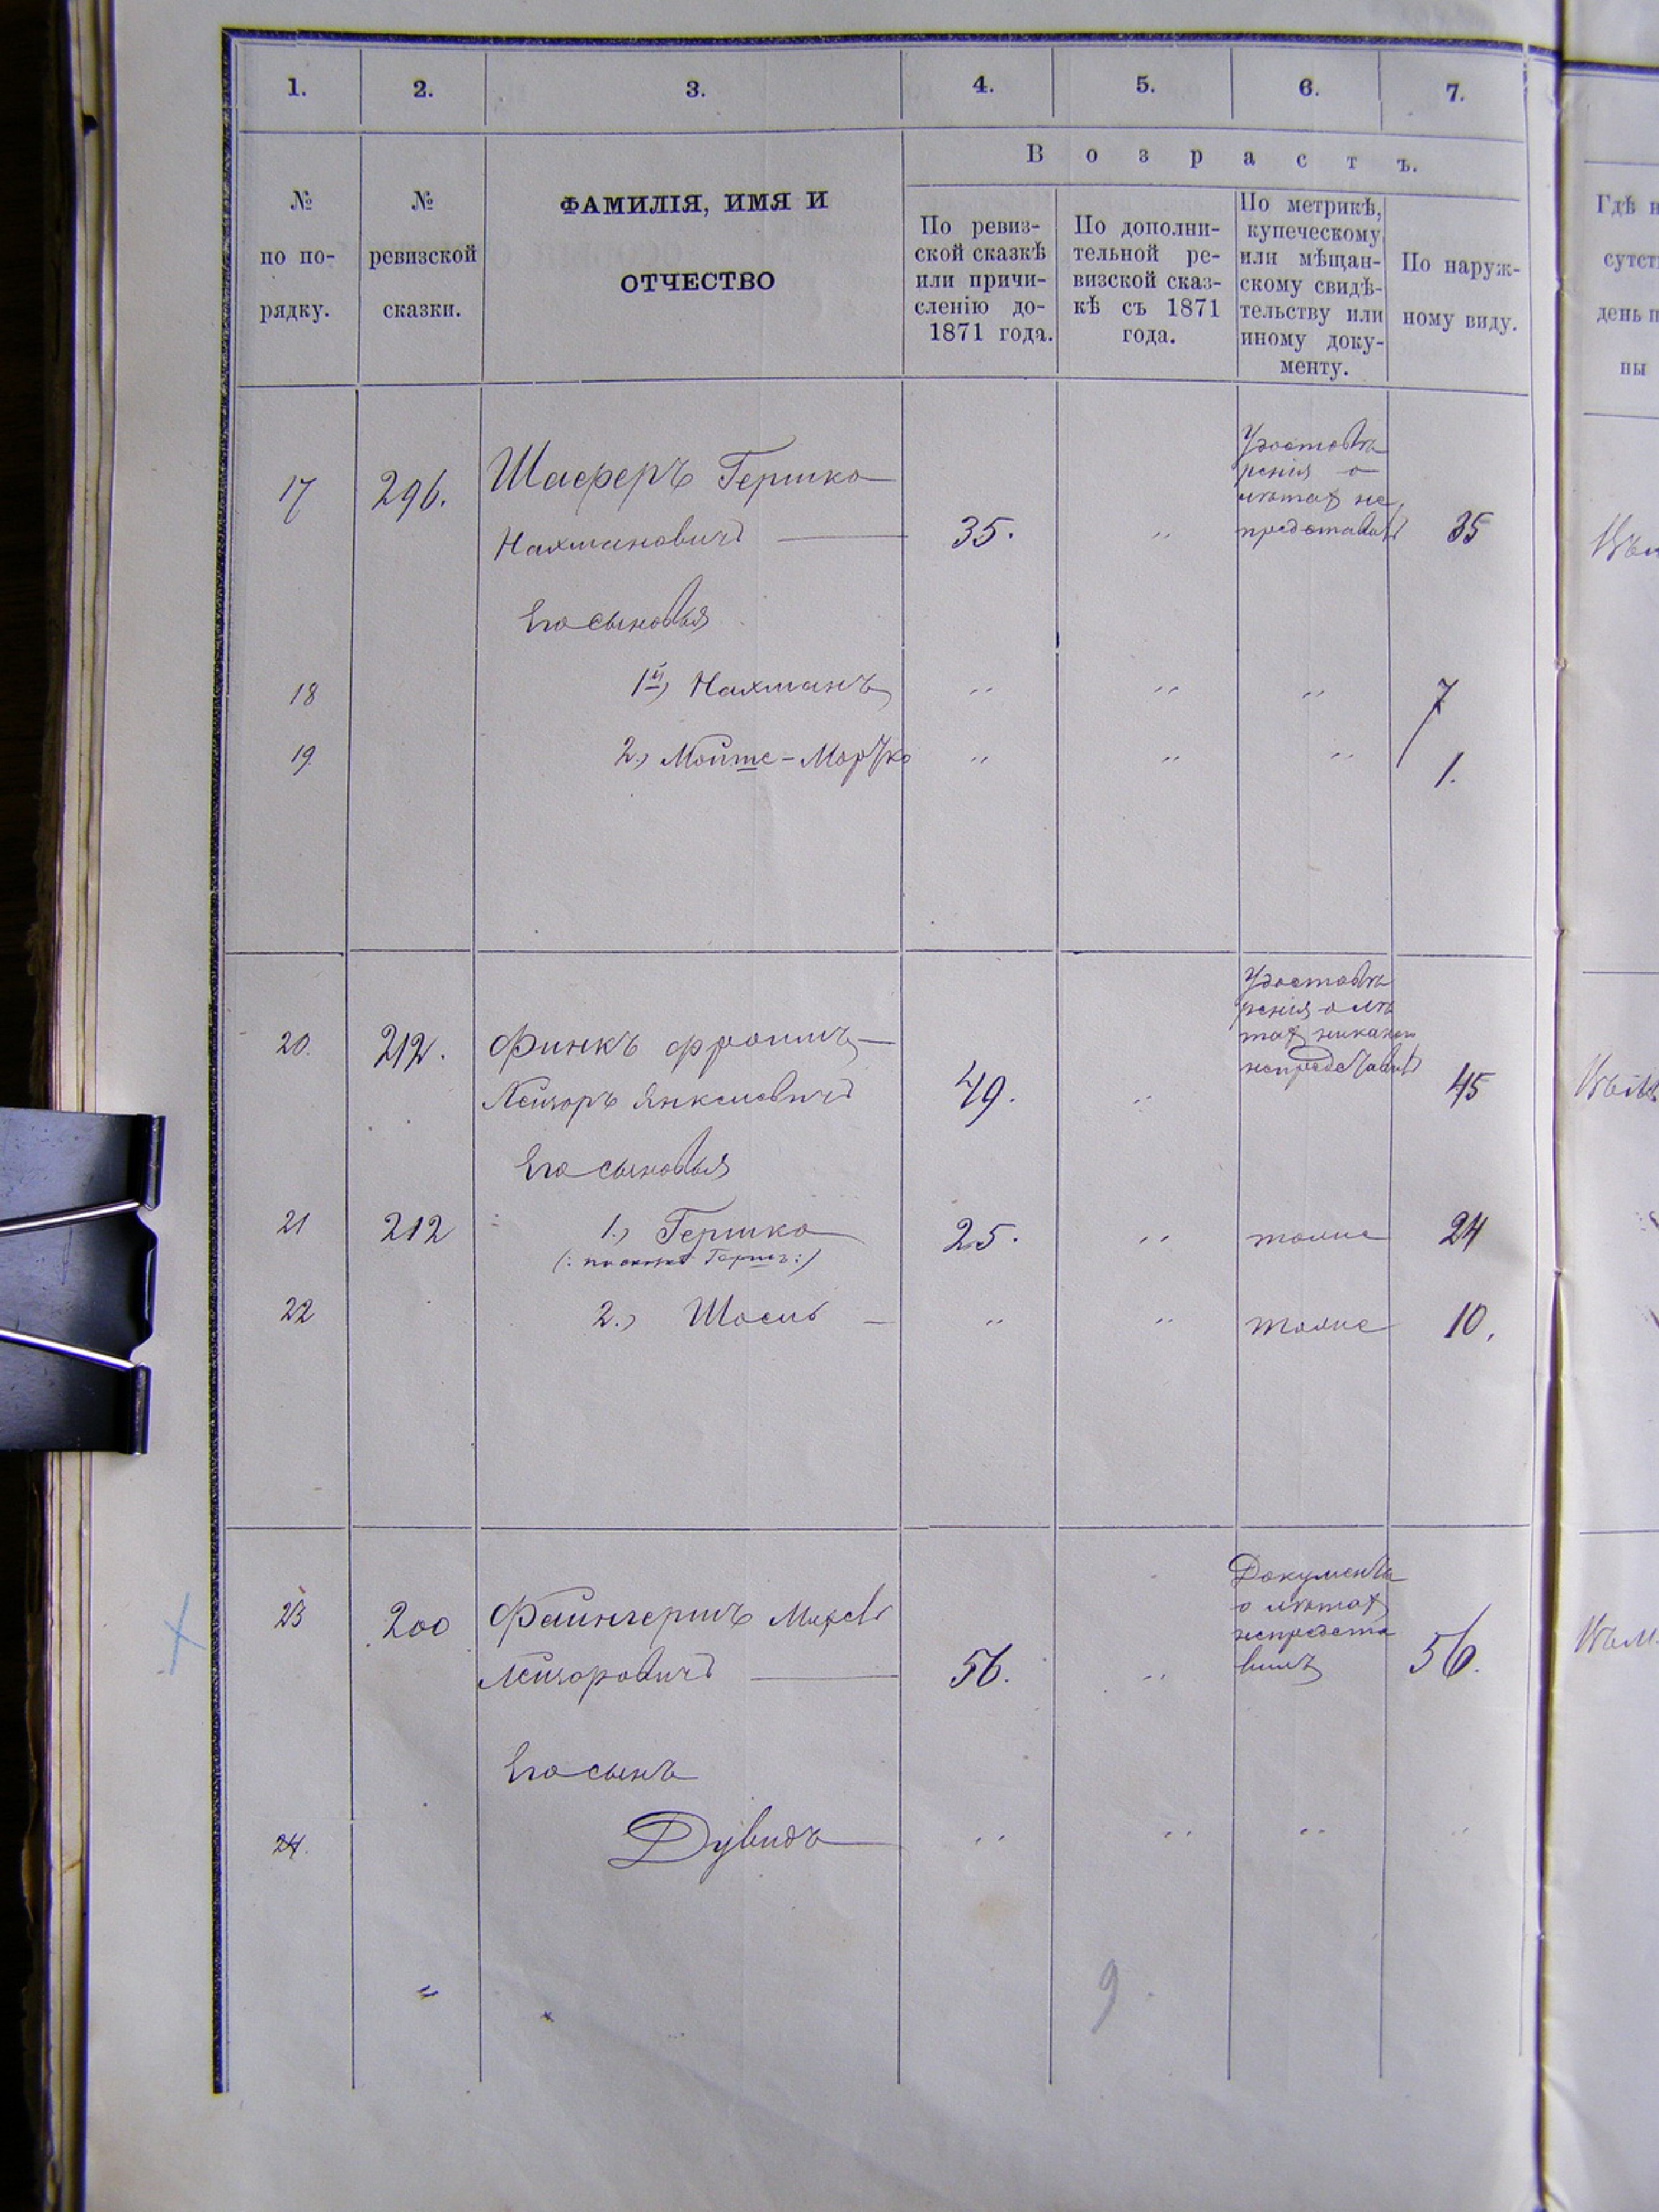 1. 2. 3. 4. 5. 6. 7.
Возрастъ.
№ по порядку.
№ ревизской сказки.
ФАМИЛІЯ, ИМЯ И
ОТЧЕСТВО
По ревиз-
ской сказкѣ
или причи-
сленію до-
1871 года.
По дополни-
тельной ре-
визской сказ-
кѣ съ 1871
года.
По метрикѣ,
купеческому
или мѣщан-
скому свидѣ-
тельству или
иному доку-
менту.
По наруж-
ному виду.
Гдѣ
сутст
день п
ны
17 296. Шаферъ Гершко
Нахмановичъ 35. " 35
Удостовѣ
ренія о
лѣтах не
представилъ
Его сыновья
18 1й, Нахманъ " " " 7
19 2, Мойше-Мортко " " " 1.
20. 212. Финкъ Фроимъ-
Лейзоръ Янкелевичъ 49. " 45
Удостовѣ
ренія о лѣ
тах никакого
непредставилъ
Его сыновья
21 212 1, Гершко 25. " тоже 24
22 2., Шоель " " тоже 10.
23 200 Файнгершъ
Лейзоровичъ 56. " 56.
Документа
о лѣтах
непредста
вилъ
Его сынъ
24. Дувидъ " " " "
9.